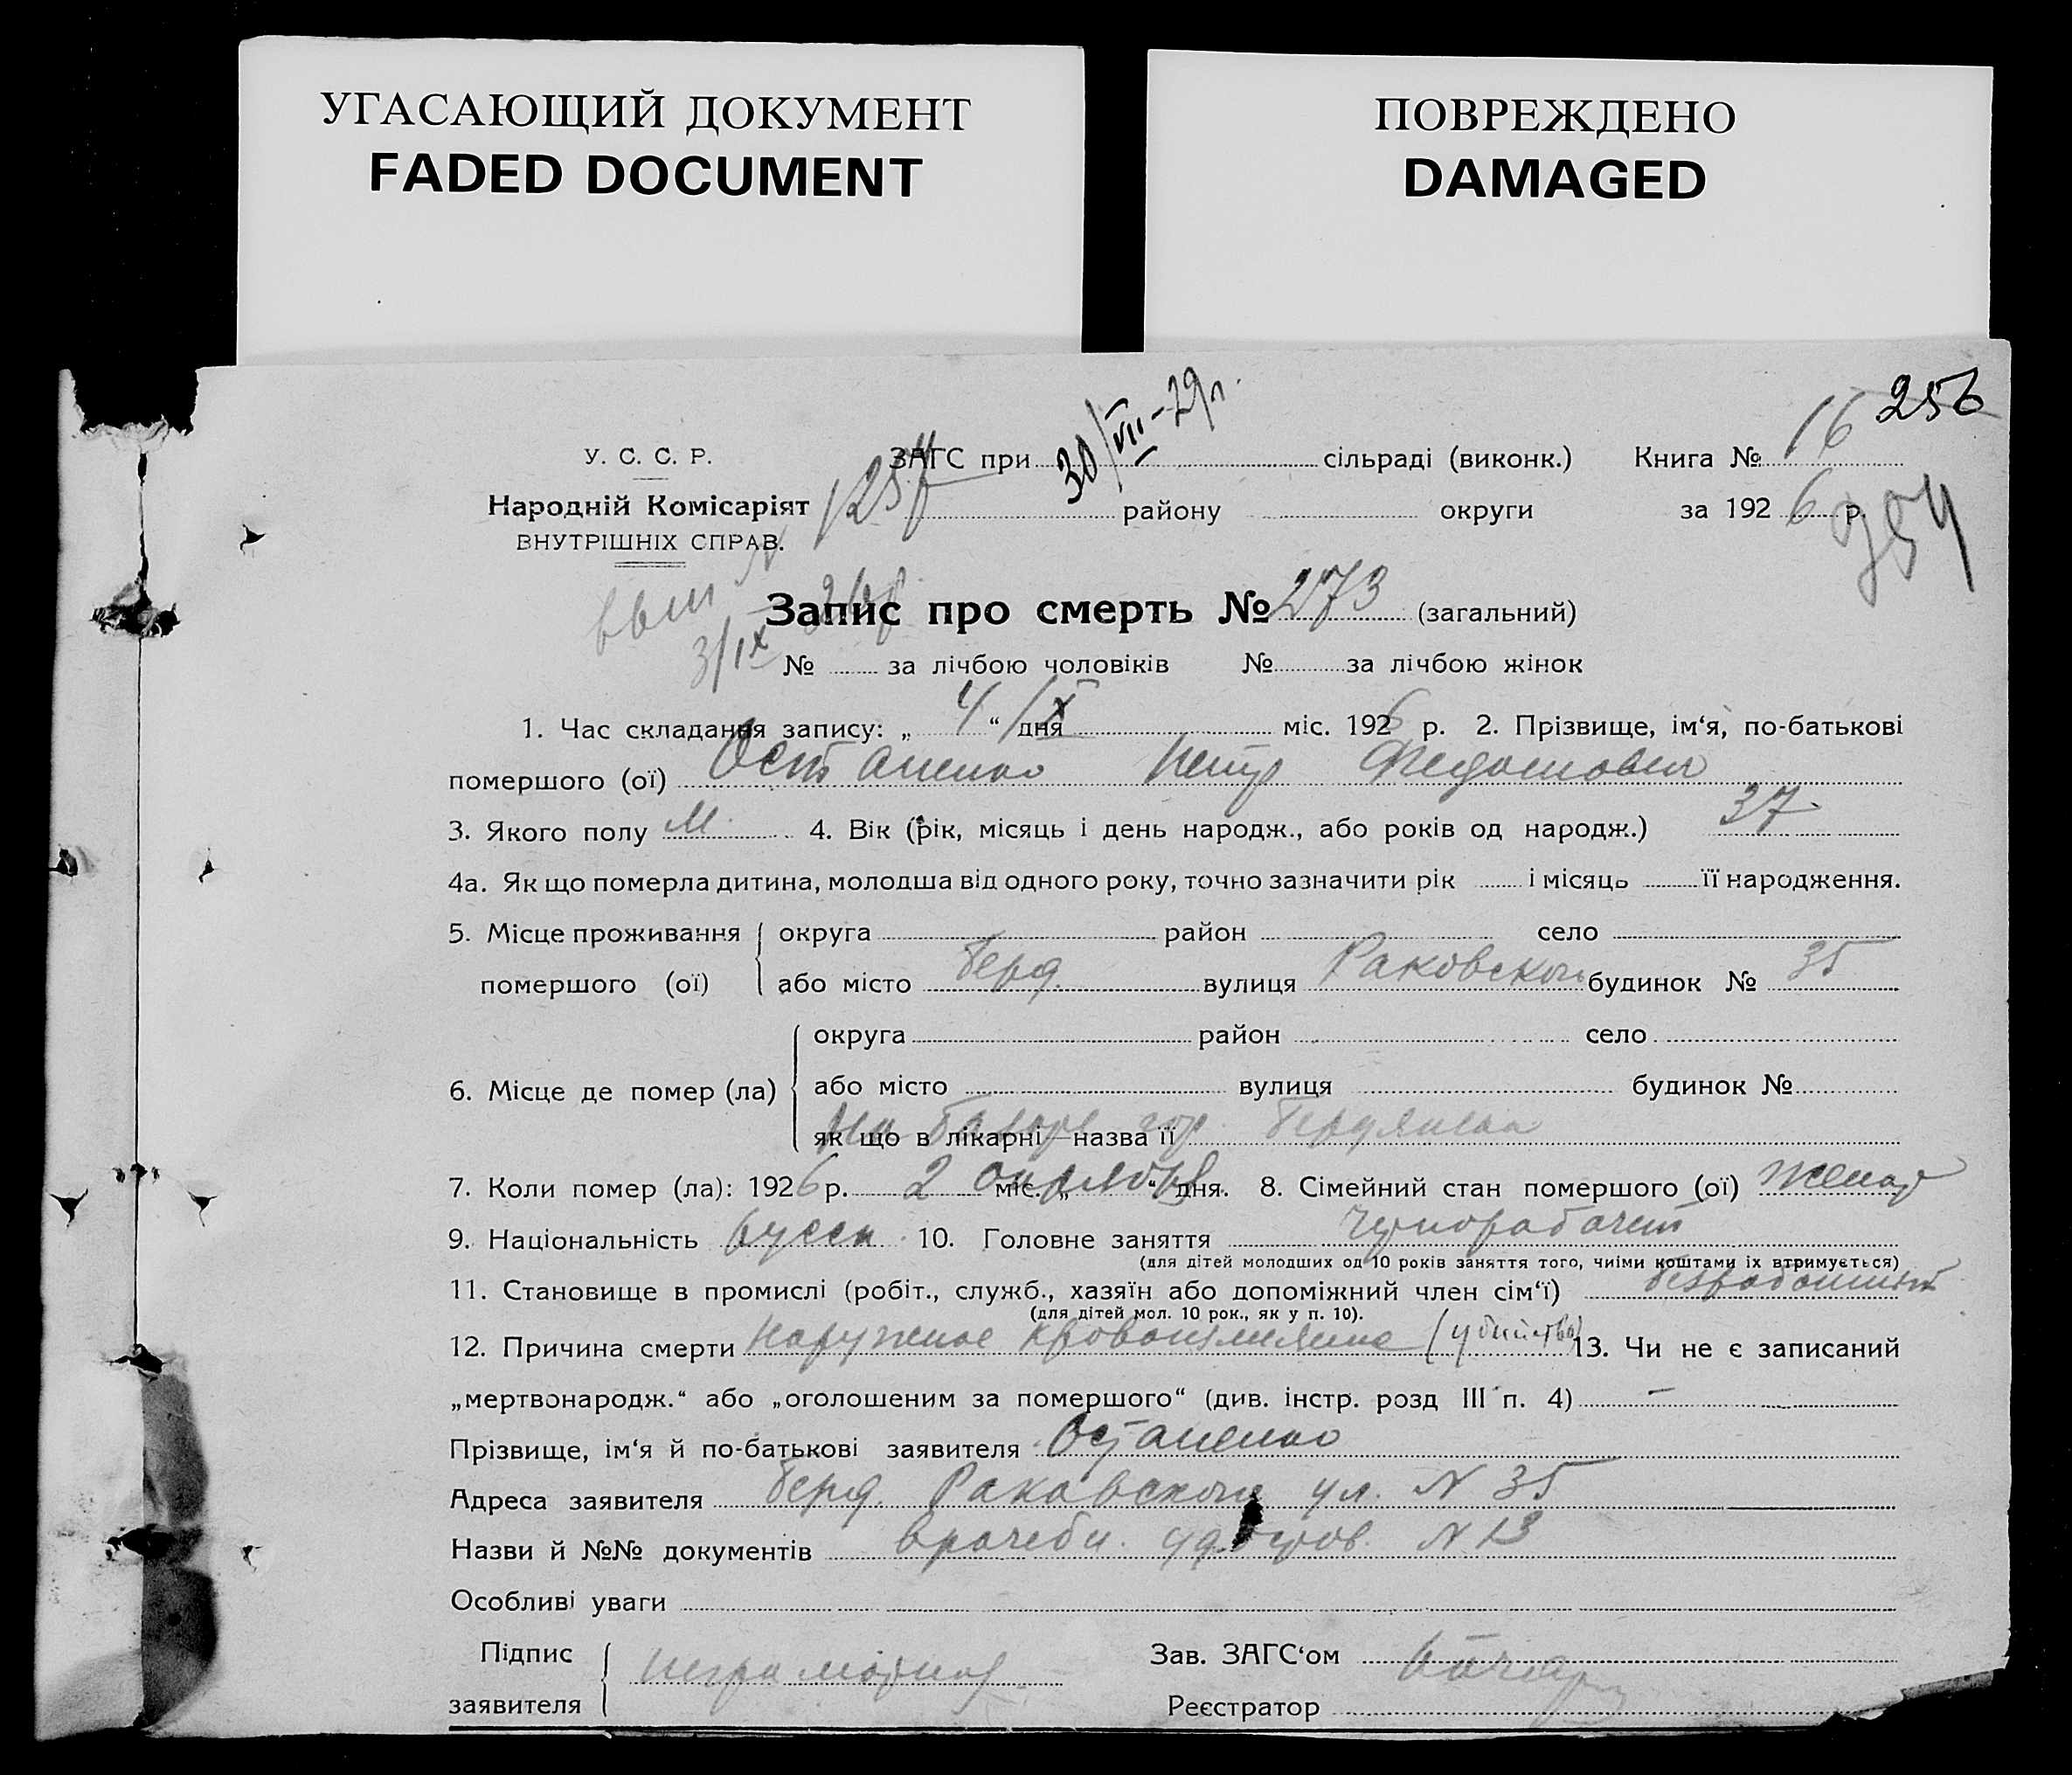 УГАСАЮЩИЙ ДОКУМЕНТ
FADED DOCUMENT
ПОВРЕЖДЕНО
DAMAGED
256
У. С. С. Р. ЗАГС при 30/VII-29г. сільраді (виконк.) Книга № 16
Народній Комісаріят району округи за 1926 р.
ВНУТРІШНІХ СПРАВ. 354
Запис про смерть № 273 (загальний)
3/IX № за лічбою чоловіків № за лічбою жінок
1. Час складання запису: „ 4 “ дня /X міс. 1926 р. 2. Прізвище, ім‘я, по-батькові
помершого (ої) Остапенко Петр Федотович
3. Якого полу М. 4. Вік (рік, місяць і день народж., або років од народж.) 37
4а. Як що померла дитина, молодша від одного року, точно зазначити рік і місяць її народження.
5. Місце проживання округа район село
помершого (ої) або місто Берд. вулиця Раковского будинок № 35
округа район село
6. Місце де помер (ла) або місто вулиця будинок №
як що в лікарні—назва її На базаре гор. Бердянска
7. Коли помер (ла): 1926 р. 2 міс. „ октября “ дня. 8. Сімейний стан помершого (ої) женат
9. Національність русск. 10. Головне заняття Чернорабочий
(для дітей молодших од 10 років заняття того, чиіми коштами іх втримується)
11. Становище в промислі (робіт., служб., хазяїн або допоміжний член сім‘ї) безработный
(для дітей мол. 10 рок., як у п. 10).
12. Причина смерти наружное кровоизлияние (убийство) 13. Чи не є записаний
„мертвонародж.“ або „оголошеним за помершого“ (див. інстр. розд III п. 4) —
Прізвище, ім‘я й по-батькові заявителя Остапенко
Адреса заявителя Берд. Раковского ул. N 35
Назви й №№ документів врачебн. удостов. N 13
Особливі уваги
Підпис неграмотная Зав. ЗАГС‘ом
заявителя Реєстратор